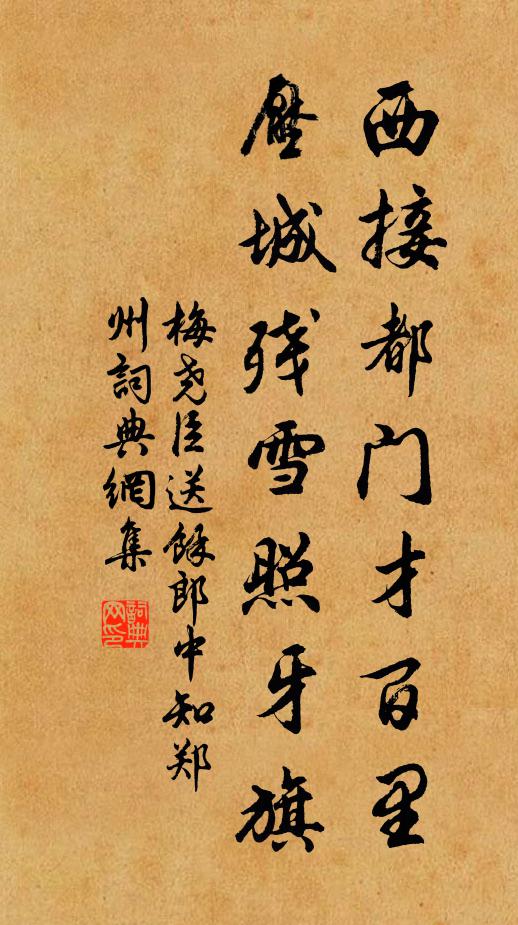 西接都门才百里
壓城残雪照牙旗
梅尧臣送馀郎中知郑
州詞典網集
詞典网印